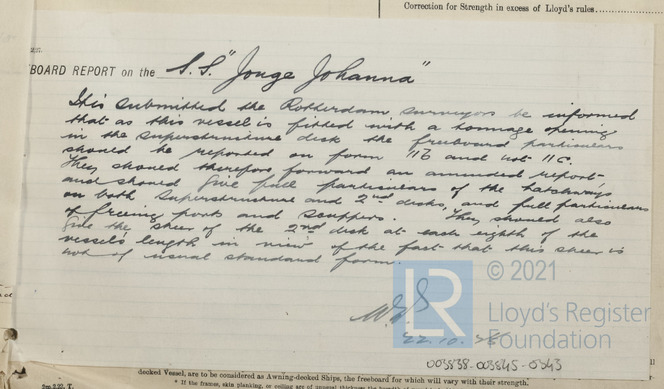 Correction for Strength in excess of Lloyd's rules
BOARD REPORT on the S.S. "Jonge Johanna"
It is submitted the Rotterdam surveyors be informed
that as this vessel is fitted with a tonnage opening
in the superstructure deck the freeboard particulars
should be reported on form 11B and not 11C.
They should therefore forward an amended report
and should give full particulars of the hatchways
on both superstructure and 2nd decks, and full particulars
of freeing ports and scuppers. They should also
give the sheer of the 2nd deck at each eighth of the
vessel's length in view of the fact that this sheer is
not of usual standard form.
LR © 2021
Lloyd's Register
Foundation
22.10.
003838-003845-0343
decked Vessel, are to be considered as Awning-decked Ships, the freeboard for which will vary with their strength.
* If the frames, skin planking, or ceiling are of unusual thickness the